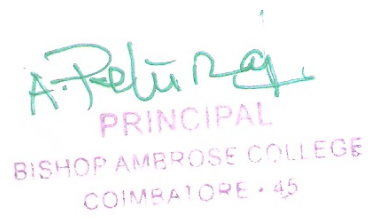 A. Peturaj
PRINCIPAL
BISHOP AMBROSE COLLEGE
COIMBATORE - 45